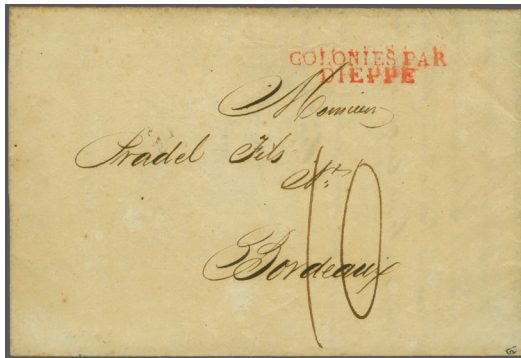 COLONIES PAR
DIEPPE
Monsieur
Pradel Fils
Nt.
Bordeaux
10